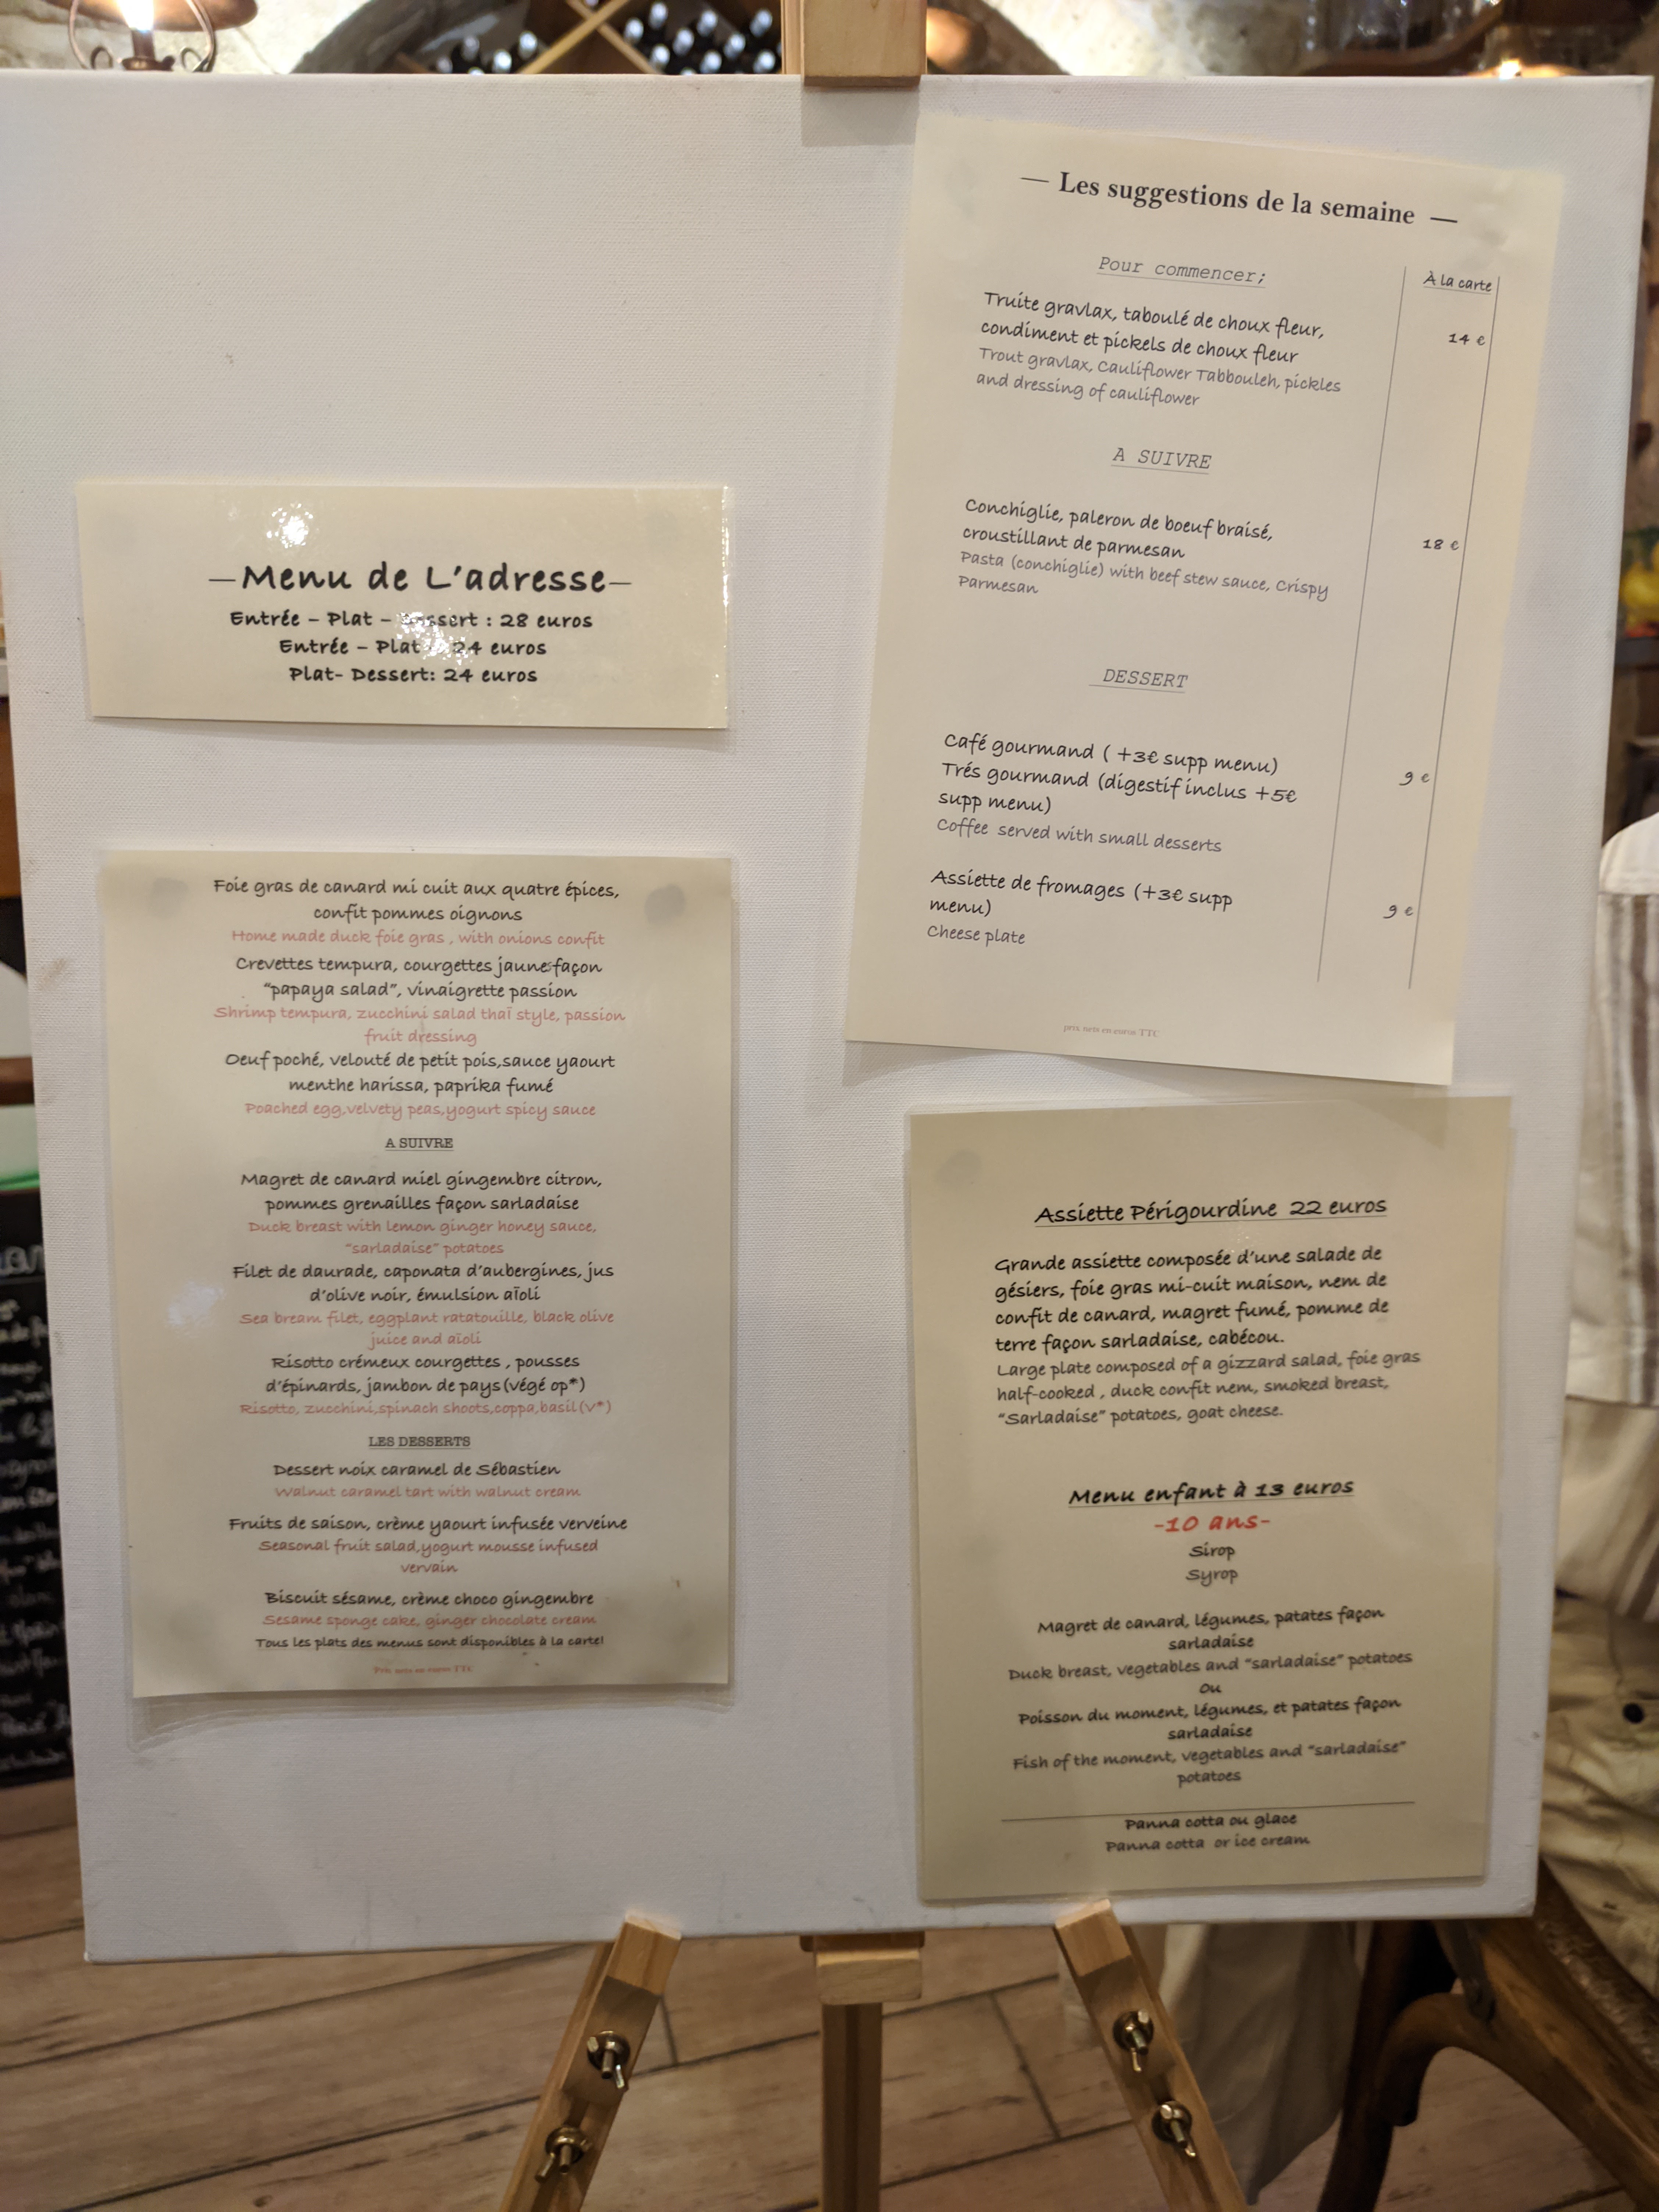 —Menu de L'adresse—
Entrée – Plat – Dessert : 28 euros
Entrée – Plat 24 euros
Plat- Dessert: 24 euros
Foie gras de canard mi cuit aux quatre épices,
confit pommes oignons
Home made duck foie gras , with onions confit
Crevettes tempura, courgettes jaune façon
"papaya salad", vinaigrette passion
Shrimp tempura, zucchini salad thaï style, passion
fruit dressing
Oeuf poché, velouté de petit pois,sauce yaourt
menthe harissa, paprika fumé
Poached egg,velvety peas,yogurt spicy sauce
A SUIVRE
Magret de canard miel gingembre citron,
pommes grenailles façon sarladaise
Duck breast with lemon ginger honey sauce,
"sarladaise" potatoes
Filet de daurade, caponata d'aubergines, jus
d'olive noir, émulsion aïoli
Sea bream filet, eggplant ratatouille, black olive
juice and aïoli
Risotto crémeux courgettes , pousses
d'épinards, jambon de pays(végé op*)
Risotto, zucchini,spinach shoots,coppa,basil(v*)
LES DESSERTS
Dessert noix caramel de Sébastien
Walnut caramel tart with walnut cream
Fruits de saison, crème yaourt infusée verveine
Seasonal fruit salad,yogurt mousse infused
vervain
Biscuit sésame, crème choco gingembre
Sesame sponge cake, ginger chocolate cream
Tous les plats des menus sont disponibles à la carte!
Prix nets en euros TTC
— Les suggestions de la semaine —
Pour commencer;
À la carte
Truite gravlax, taboulé de choux fleur,
14 €
condiment et pickels de choux fleur
Trout gravlax, Cauliflower Tabbouleh, pickles
and dressing of cauliflower
A SUIVRE
Conchiglie, paleron de boeuf braisé,
18 €
croustillant de parmesan
Pasta (conchiglie) with beef stew sauce, Crispy
Parmesan
DESSERT
Café gourmand ( +3€ supp menu)
9 €
Trés gourmand (digestif inclus +5€
supp menu)
Coffee served with small desserts
Assiette de fromages (+3€ supp
9 €
menu)
Cheese plate
prix nets en euros TTC
Assiette Périgourdine 22 euros
Grande assiette composée d'une salade de
gésiers, foie gras mi-cuit maison, nem de
confit de canard, magret fumé, pomme de
terre façon sarladaise, cabécou.
Large plate composed of a gizzard salad, foie gras
half-cooked , duck confit nem, smoked breast,
"Sarladaise" potatoes, goat cheese.
Menu enfant à 13 euros
-10 ans-
Sirop
Syrop
Magret de canard, légumes, patates façon
sarladaise
Duck breast, vegetables and "sarladaise" potatoes
Ou
Poisson du moment, légumes, et patates façon
sarladaise
Fish of the moment, vegetables and "sarladaise"
potatoes
Panna cotta ou glace
Panna cotta or ice cream